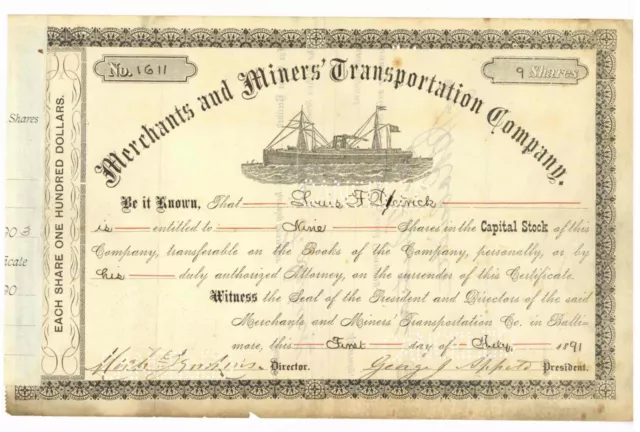 No. 1611
9 Shares
Merchants and Miners' Transportation Company.
EACH SHARE ONE HUNDRED DOLLARS.
Shares
Be it Known, That Louis F
is entitled to Nine Shares in the Capital Stock of this
Company, transferable on the Books of the Company, personally, or by
his duly authorized Attorney, on the surrender of this Certificate.
Witness the Seal of the President and Directors of the said
Merchants and Miners' Transportation Co. in Balti-
more, this First day of July, 1891
Director.
George J Appold President.